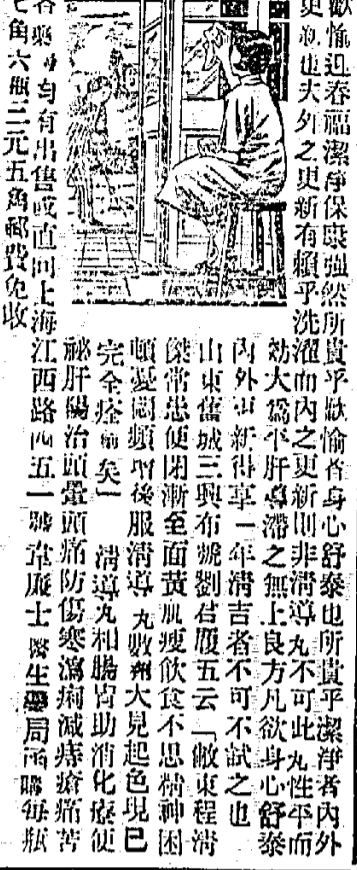 歡愉迎春福潔淨保康强然所貴乎歡愉者身心舒泰也所貴乎潔淨者內外
更新也夫外之更新有賴乎洗濯而內之更新則非淸導丸不可此丸性平而
効大爲平肝導滯之無上良方凡欲身心舒泰
內外更新得享一年淸吉者不可不試之也
山東舊城三興布號劉君履五云「敝東程淸
傑常患便閉漸至面黃肌瘦飲食不思精神困
頓憂悶頻增後服淸導丸數瓶大見起色現已
完全痊愈矣」淸導丸和腸胃助消化療便
祕肝陽治頭暈頭痛防傷寒瀉痢減痔瘡痛苦
各藥房均有出售或直向上海江西路四五一號韋廉士醫生藥局函購每瓶
七角六瓶三元五角郵費免收